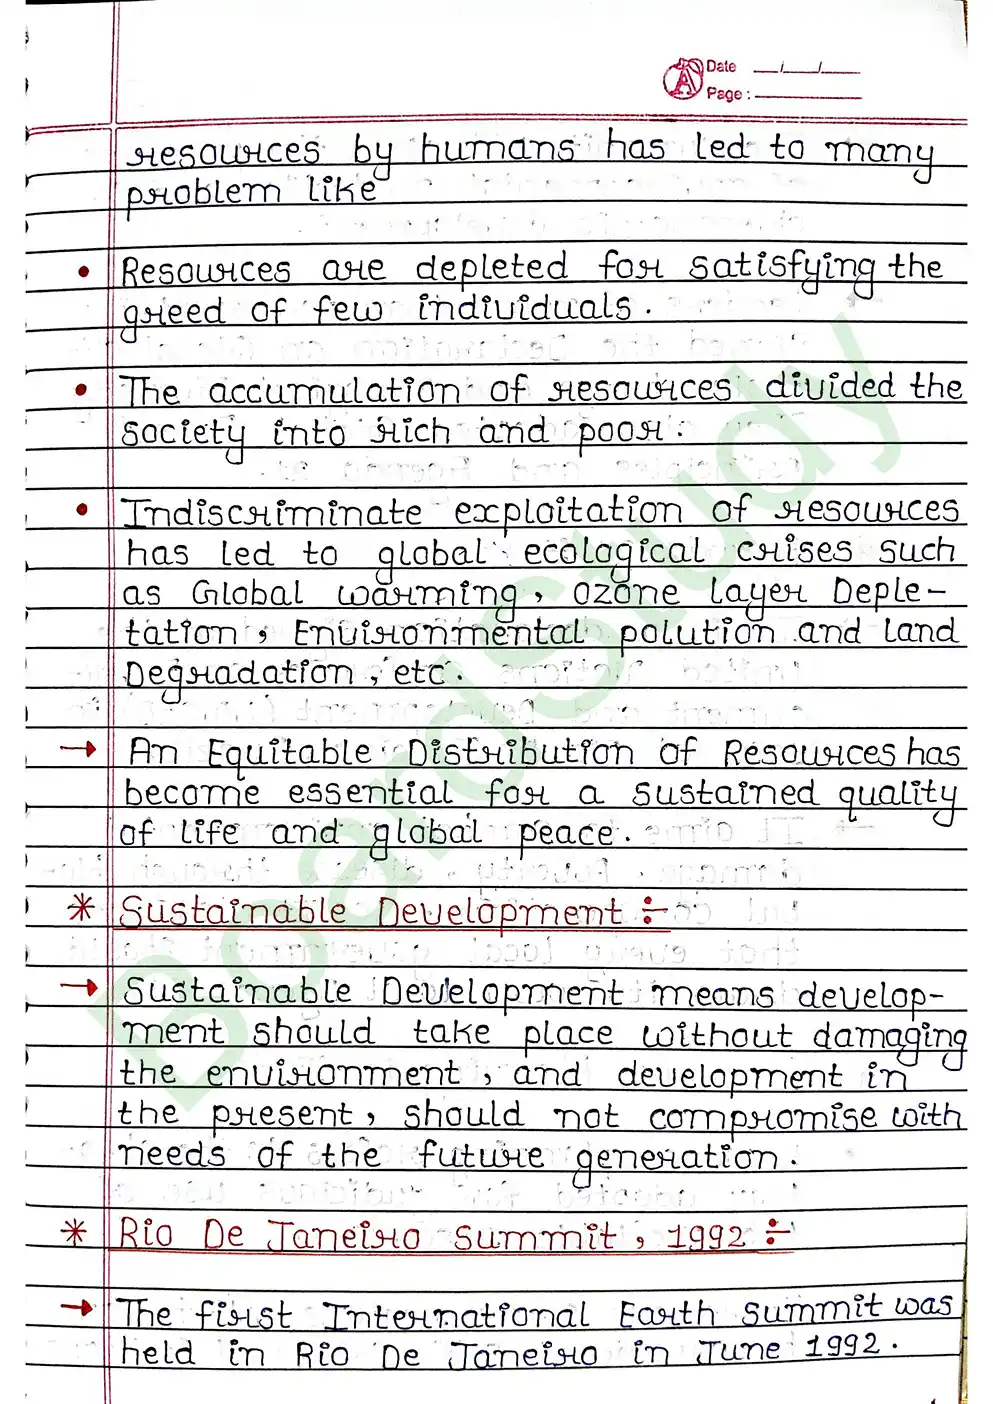 Date __/__/__
Page :
resources by humans has led to many
problem like
• Resources are depleted for satisfying the
greed of few individuals.
• The accumulation of resources divided the
society into rich and poor.
• Indiscriminate exploitation of resources
has led to global ecological crises such
as Global warming, ozone layer Deple-
tation, Environmental polution and land
Degradation, etc.
→ An Equitable Distribution of Resources has
become essential for a sustained quality
of life and global peace.
* Sustainable Development :-
→ Sustainable Development means develop-
ment should take place without damaging
the environment, and development in
the present, should not compromise with
needs of the future generation.
* Rio De Janeiro Summit, 1992 :-
→ The first International Earth Summit was
held in Rio De Janeiro in June 1992.
BoardStudy